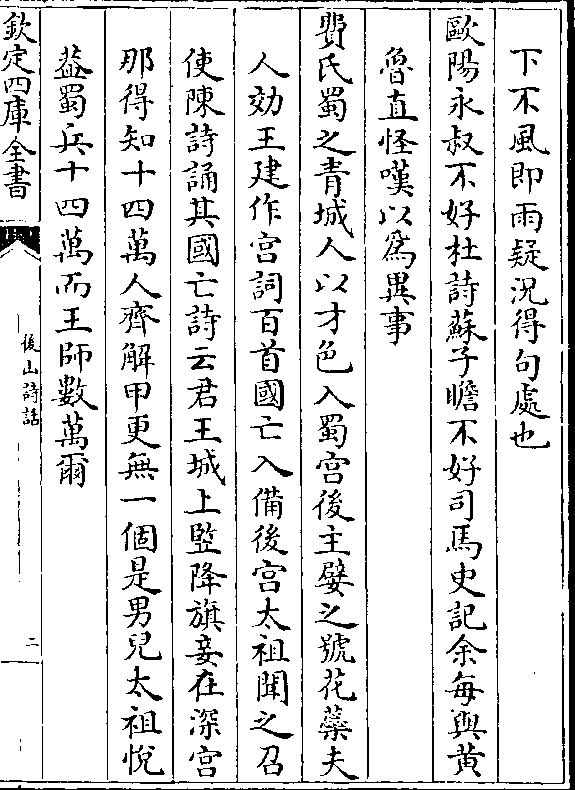 下不風即雨疑況得句處也
歐陽永叔不好杜詩蘇子瞻不好司馬史記余每與黄
魯直怪嘆以爲異事
費氏蜀之青城人以才色入蜀宫後主嬖之號花蘂夫
人効王建作宫詞百首國亡入備後宫太祖聞之召
使陳詩誦其國亡詩云君王城上竪降旗妾在深宫
那得知十四萬人齊解甲更無一個是男兒太祖悦
葢蜀兵十四萬而王師數萬爾
欽定四庫全書
後山詩話
二